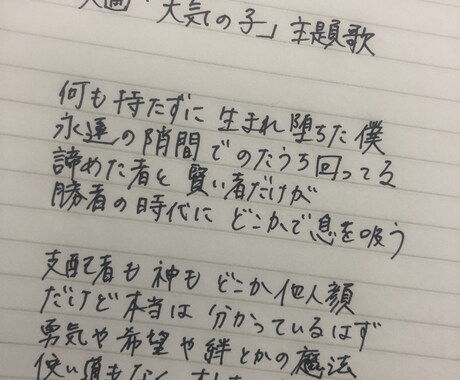 映画「天気の子」主題歌
何も持たずに 生まれ堕ちた僕
永遠の隙間でのたうち回ってる
諦めた者と 賢い者だけが
勝者の時代に どこかで息を吸う
支配者も 神も どこか他人顔
だけど本当は 分かっているはず
勇気や希望や絆とかの魔法
使い道もなく